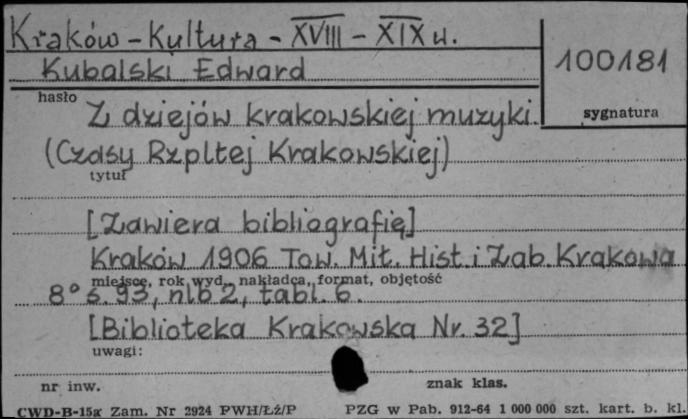 Kraków - Kultura - XVIII - XIX w.
Kubalski Edward
100181
hasło
sygnatura
Z dziejów krakowskiej muzyki.
(Czasy Rzpltej Krakowskiej)
tytuł
[Zawiera bibliografię]
Kraków 1906 Tow. Mił. Hist. i Zab. Krakowa
miejsce, rok wyd., nakładca, format, objętość
8° s. 93, nlb 2, tabl. 6.
[Biblioteka Krakowska Nr. 32]
uwagi:
nr inw.
znak klas.
CWD-B-15g Zam. Nr 2924 PWH/Łż/P
PZG w Pab. 912-64 1 000 000 szt. kart. b. kl.